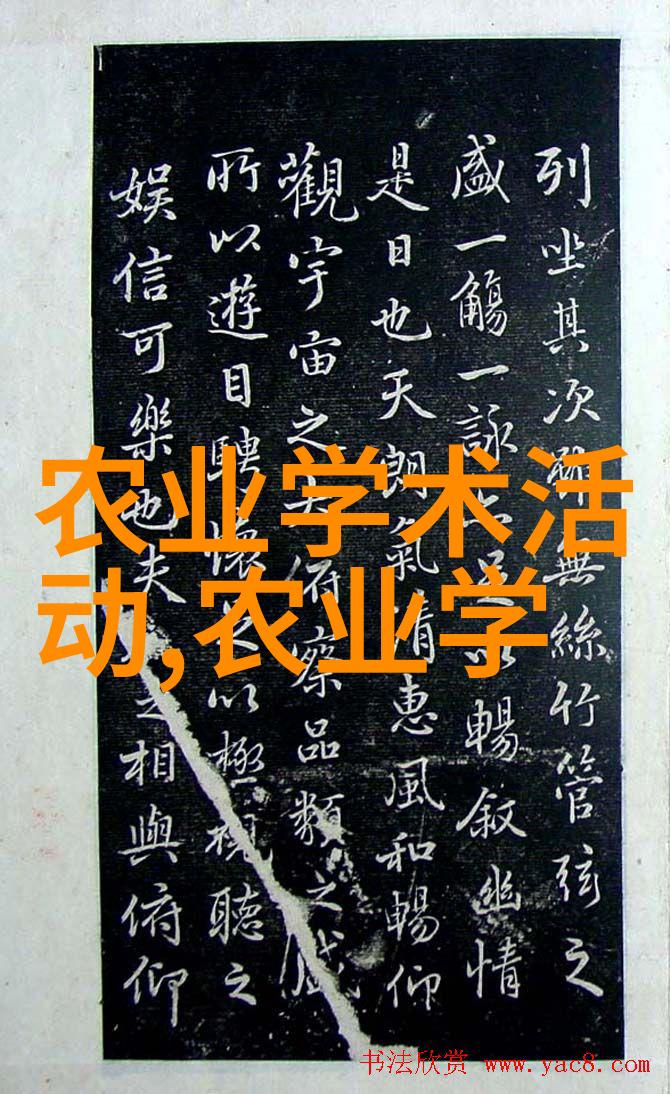 列坐其次雖無絲竹管弦之
盛一觴一詠亦足以暢叙幽情
是日也天朗氣清惠風和暢仰
觀宇宙之大俯察品類之盛
所以遊目騁懷足以極視聽之
娛信可樂也夫之相與俯仰
农业学术活
动,农业学
书法欣赏 www.yac8.com